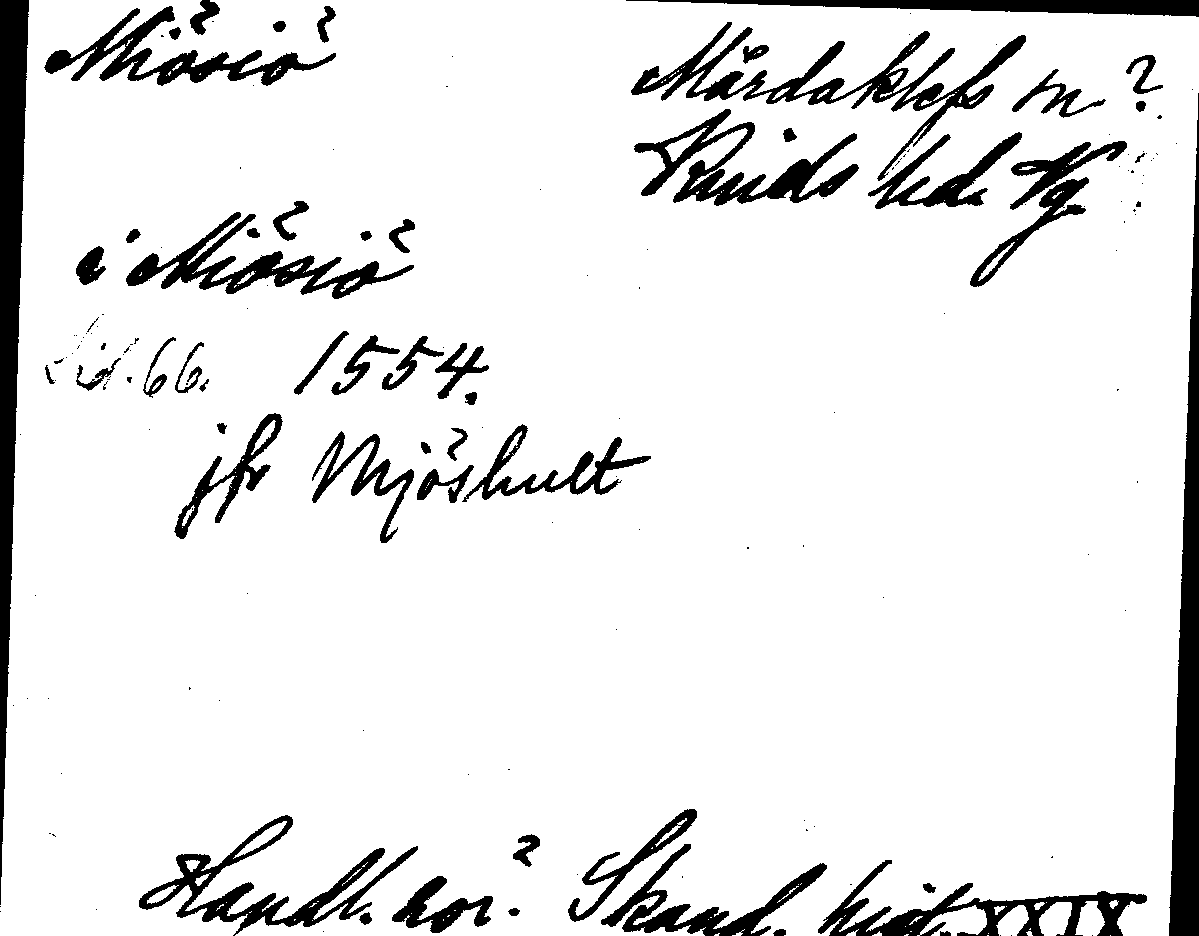 Miösiö
Mårdaklefs sn?
Kinds hd. Vg
i Miösiö
Sid. 66. 1554.
jfr Mjöshult
Handl. rör. Skand. hist. XXIX